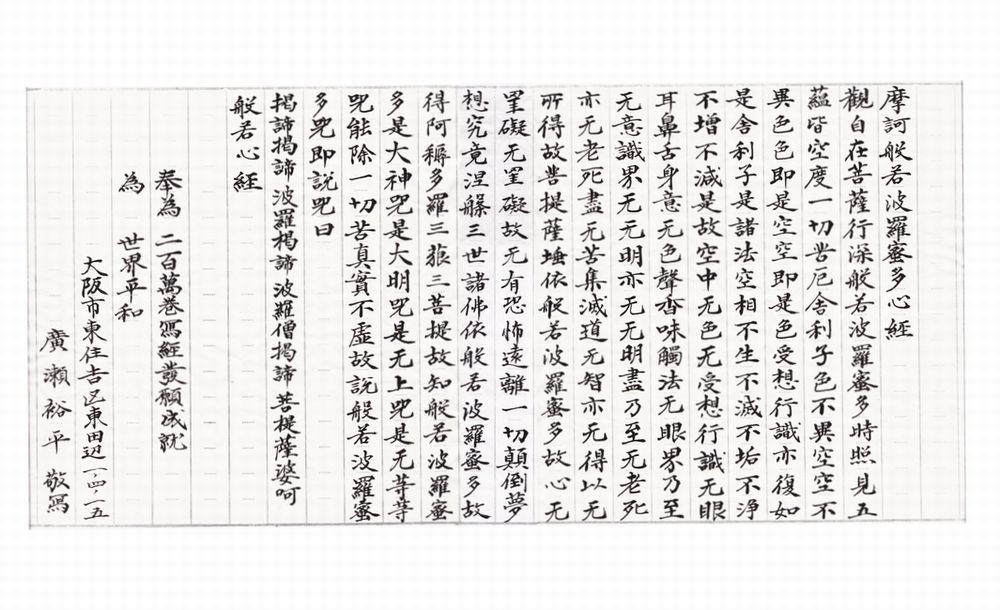 摩訶般若波羅蜜多心経
觀自在菩薩行深般若波羅蜜多時照見五
蘊皆空度一切苦厄舎利子色不異空空不
異色色即是空空即是色受想行識亦復如
是舎利子是諸法空相不生不滅不垢不浄
不增不減是故空中无色无受想行識无眼
耳鼻舌身意无色聲香味觸法无眼界乃至
无意識界无无明亦无无明盡乃至无老死
亦无老死盡无苦集滅道无智亦无得以无
所得故菩提薩埵依般若波羅蜜多故心无
罣礙无罣礙故无有恐怖遠離一切顛倒夢
想究竟涅槃三世諸佛依般若波羅蜜多故
得阿耨多羅三藐三菩提故知般若波羅蜜
多是大神咒是大明咒是无上咒是无等等
咒能除一切苦真實不虚故說般若波羅蜜
多咒即說咒曰
掲諦掲諦波羅掲諦波羅僧掲諦菩提薩婆呵
般若心経
奉為 二百萬巻寫経發願成就
為 世界平和
大阪市東住吉区東田辺一、四、一五
廣瀬裕平 敬寫